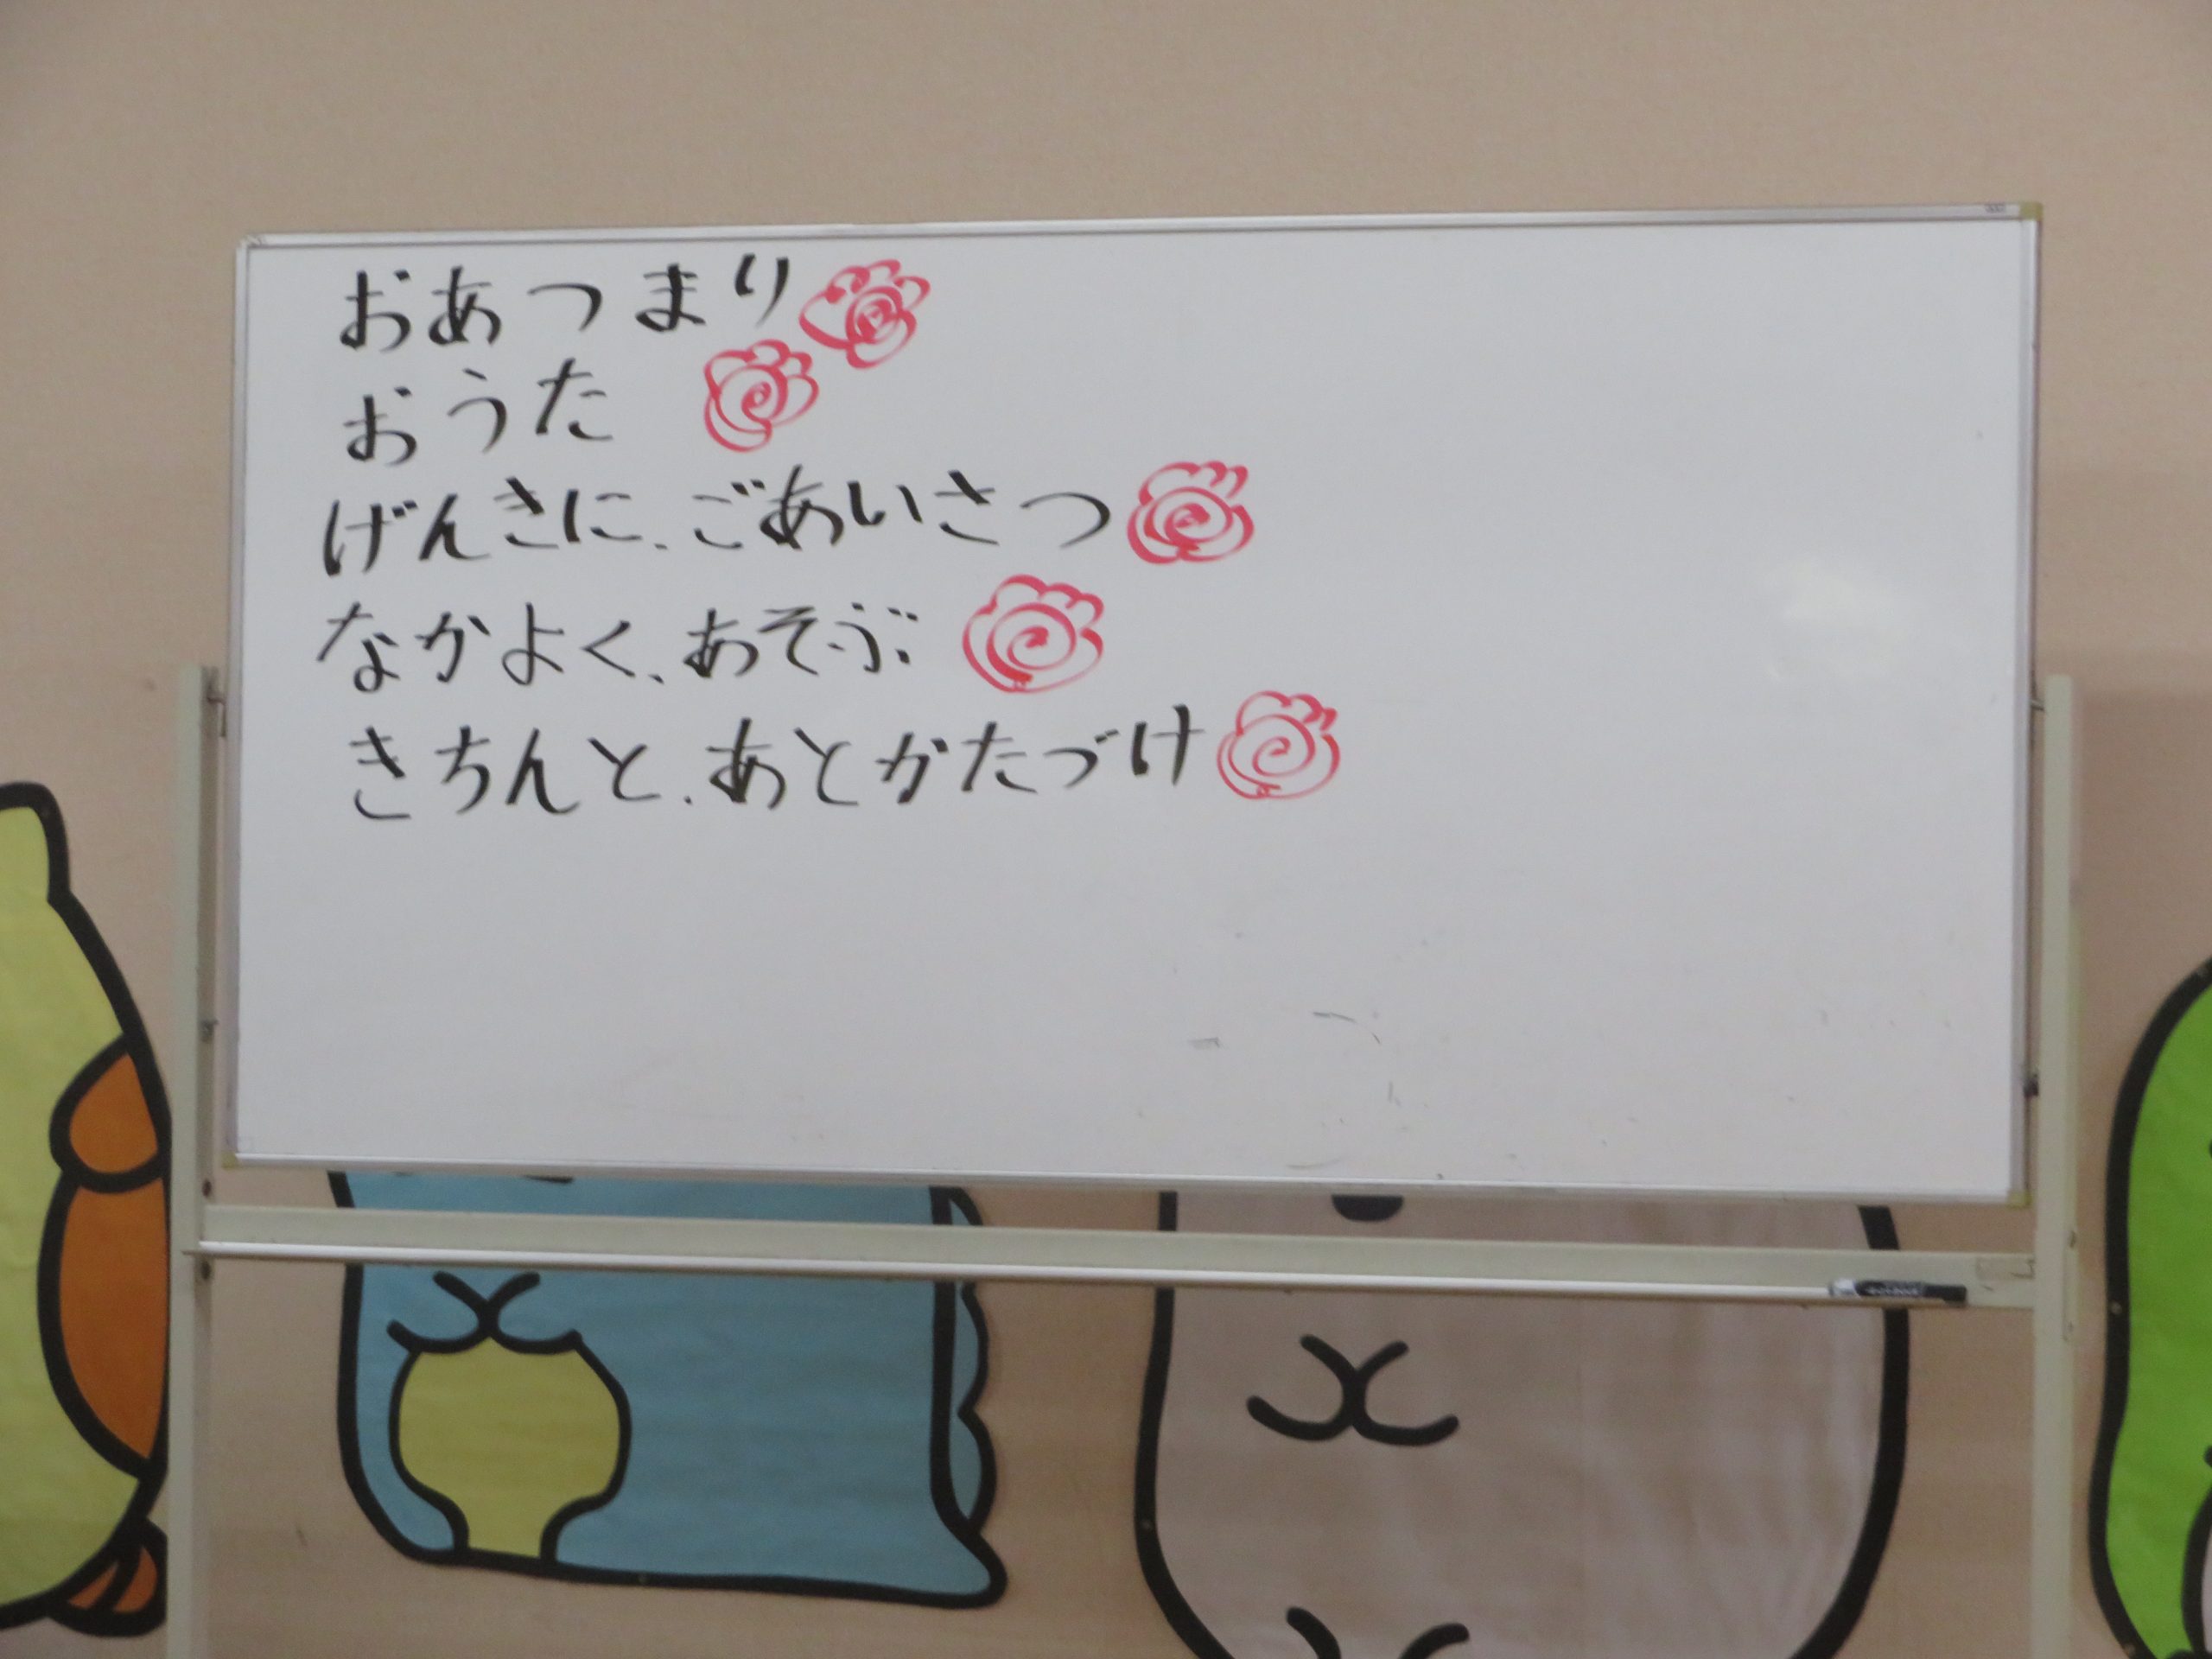 おあつまり
おうた
げんきに、ごあいさつ
なかよく、あそぶ
きちんと、あとかたづけ